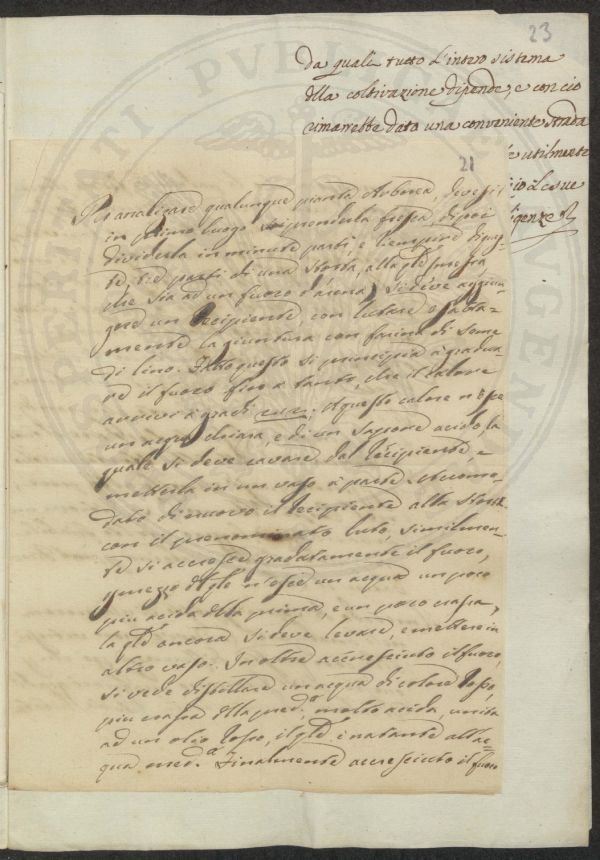 23
da quali tutto l'intero sistema
della coltivazione dipende, e con ciò
rimarrebbe data una conveniente strada
e utilmente
21
Per analizare qualunque pianta Arborea, devesi
in primo luogo prenderla fresca, dipoi
dividerla in minute parti, e
parti di una storta, alla qle
che sia ad un fuoco d'arena, si deve aggiun-
gere un recipiente, con lutare esatta-
mente la giuntura con farina di seme
di lino. Fatto questo si principia a gradua-
re il fuoco fino a tanto, che il calore
arrivi a gradi A questo calore n'esce
un acqua chiara, e di un sapore acido, la
quale si deve cavare dal recipiente, e
metterla in un vaso a parte. Accomo-
dato di nuovo il recipiente alla storta
con il prenominato luto, similmen-
te si accresce gradatamente il fuoco,
mezzo del qle n'esce un acqua un poco
più acida della prima, e un poco crassa,
la qle ancora si deve levare, e mettere in
altro vaso. In oltre accresciuto il fuoco,
si vede distillare un acqua di colore rosso,
più crassa della pred.a, molto acida, unita
ad un olio rosso, il qle è natante all'ac=
qua med.a Finalmente accresciuto il fuoco